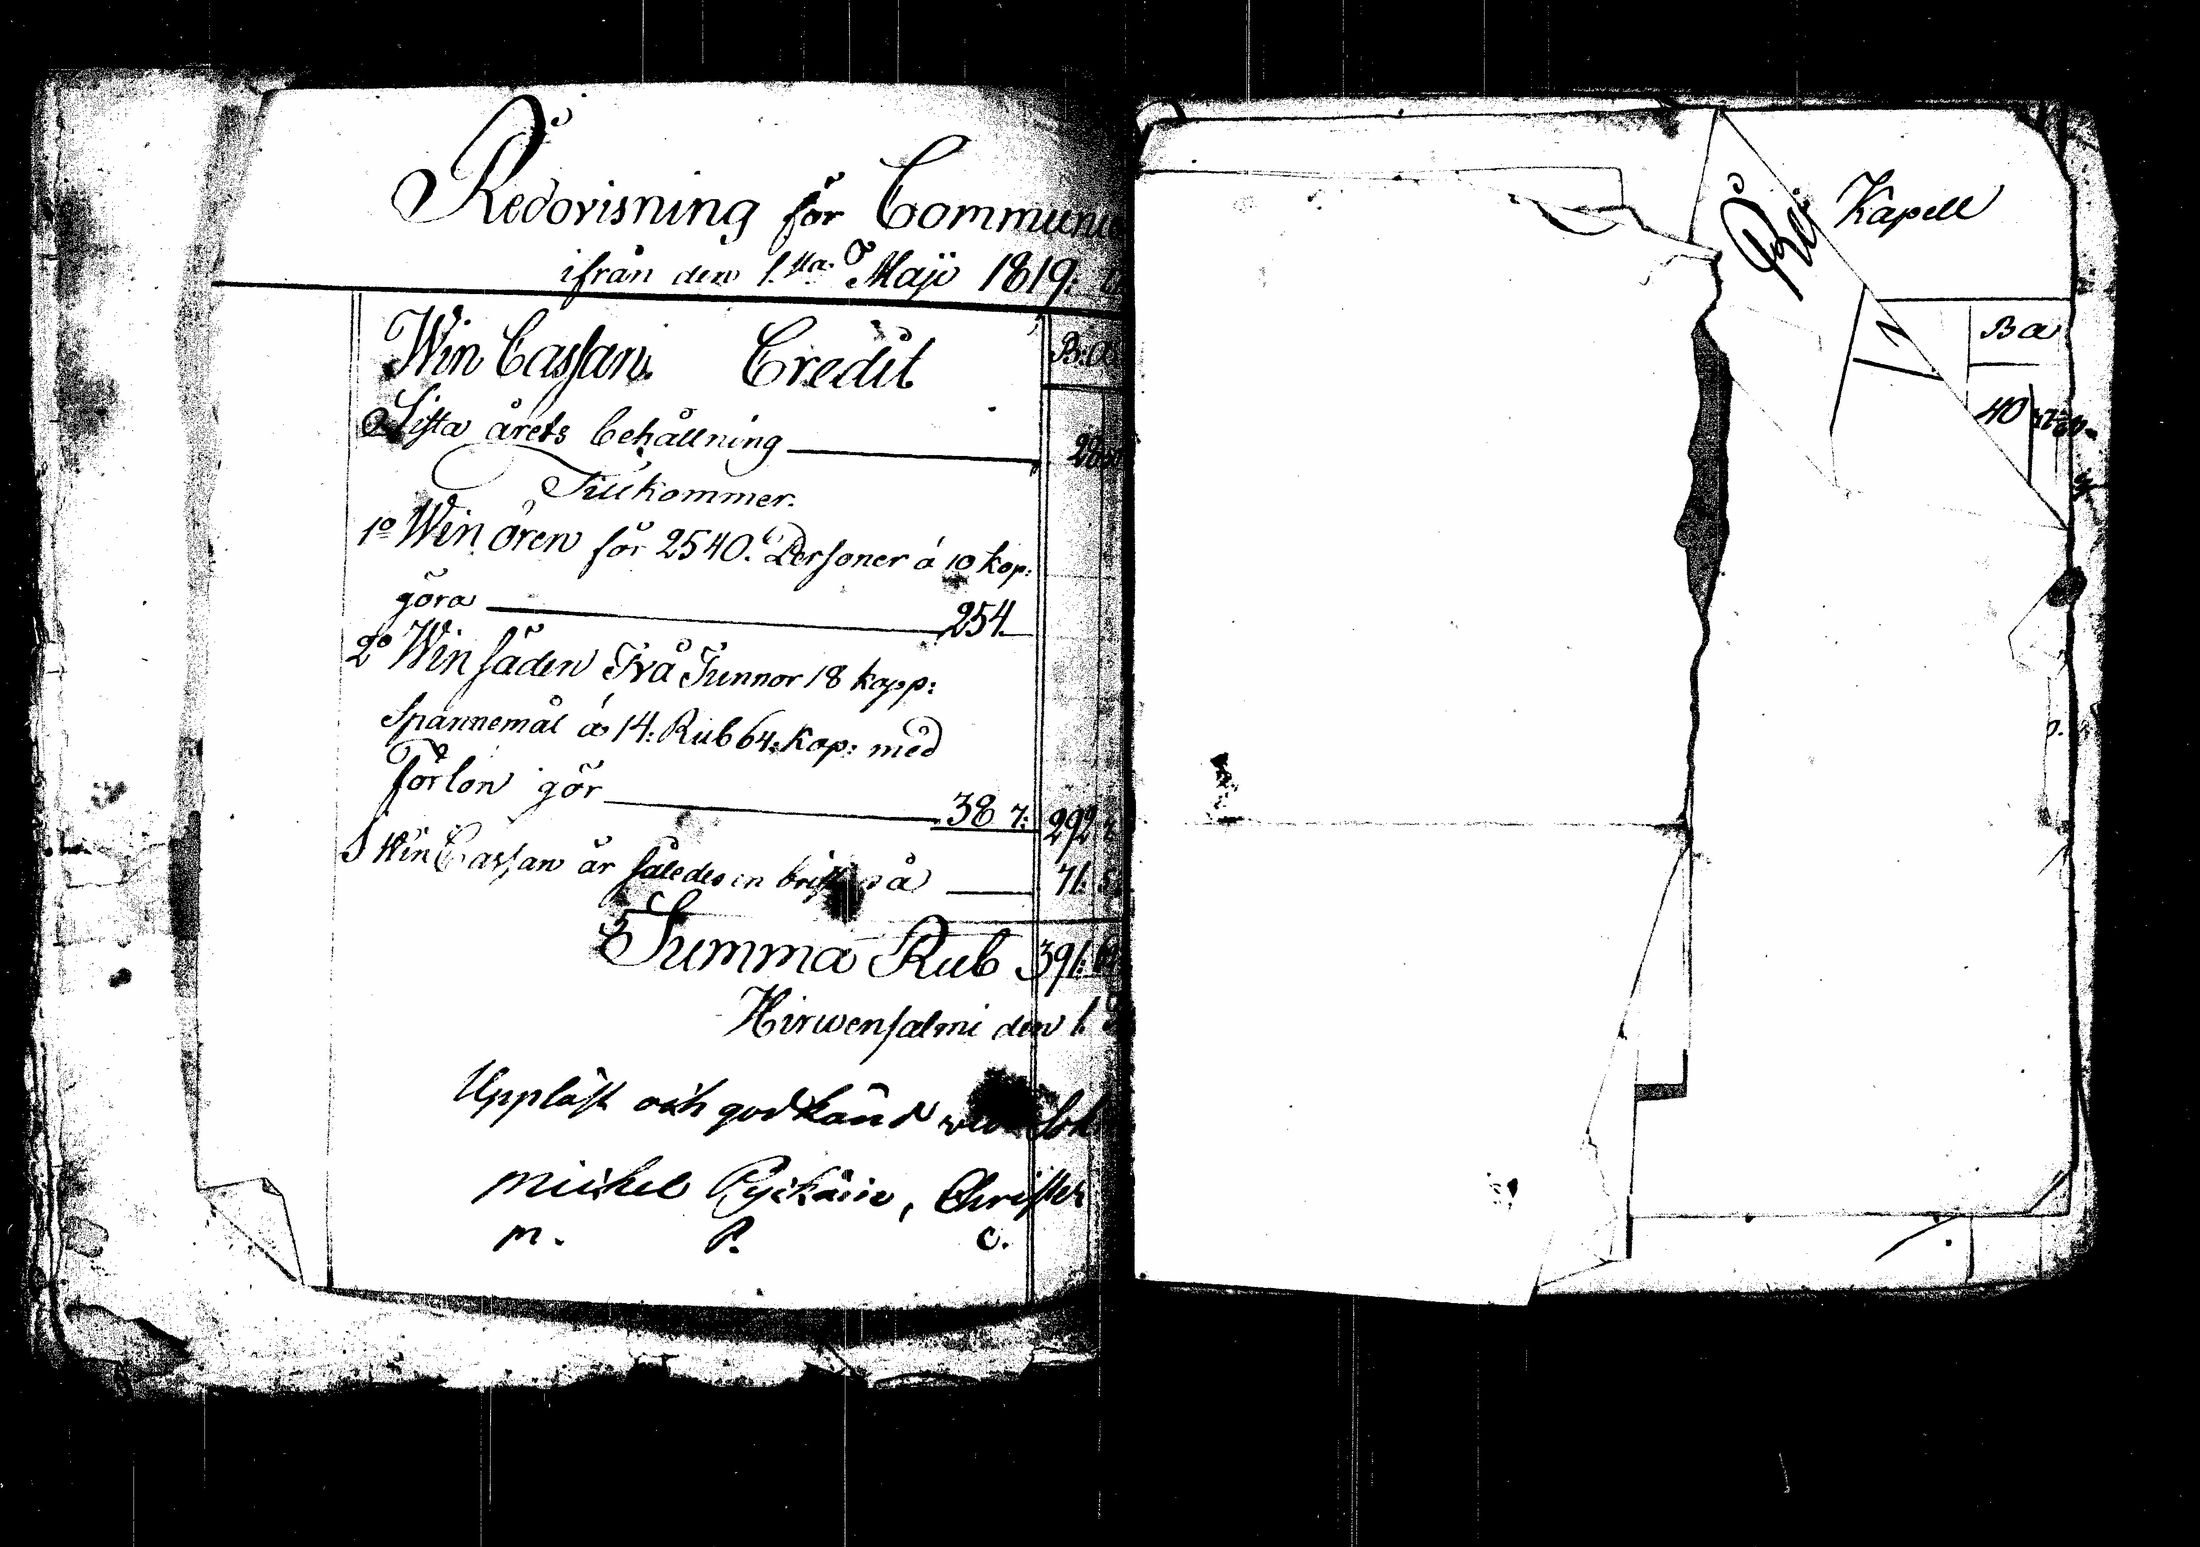 Redovisning för Communi
ifrån den 1.sta Maji 1819:
Win Cassan. Credit B:a
Sista årets behållning 28
Tillkommer.
1o Win ören för 2540. Personer á 10 kop:
göra 254.
2o Win säden Två Tunnor 18 kapp:
Spannemål á 14: Rub 64: kop: med
Forlön gör 38 7: 292 7
I Win Cassan är således en brist på 71: 5
Summa Rub 391: 6
Hirwensalmi den 1.
Uppläst och godkänd
Michel Christer
M. P. C.
Kapell
Re
Ba
40